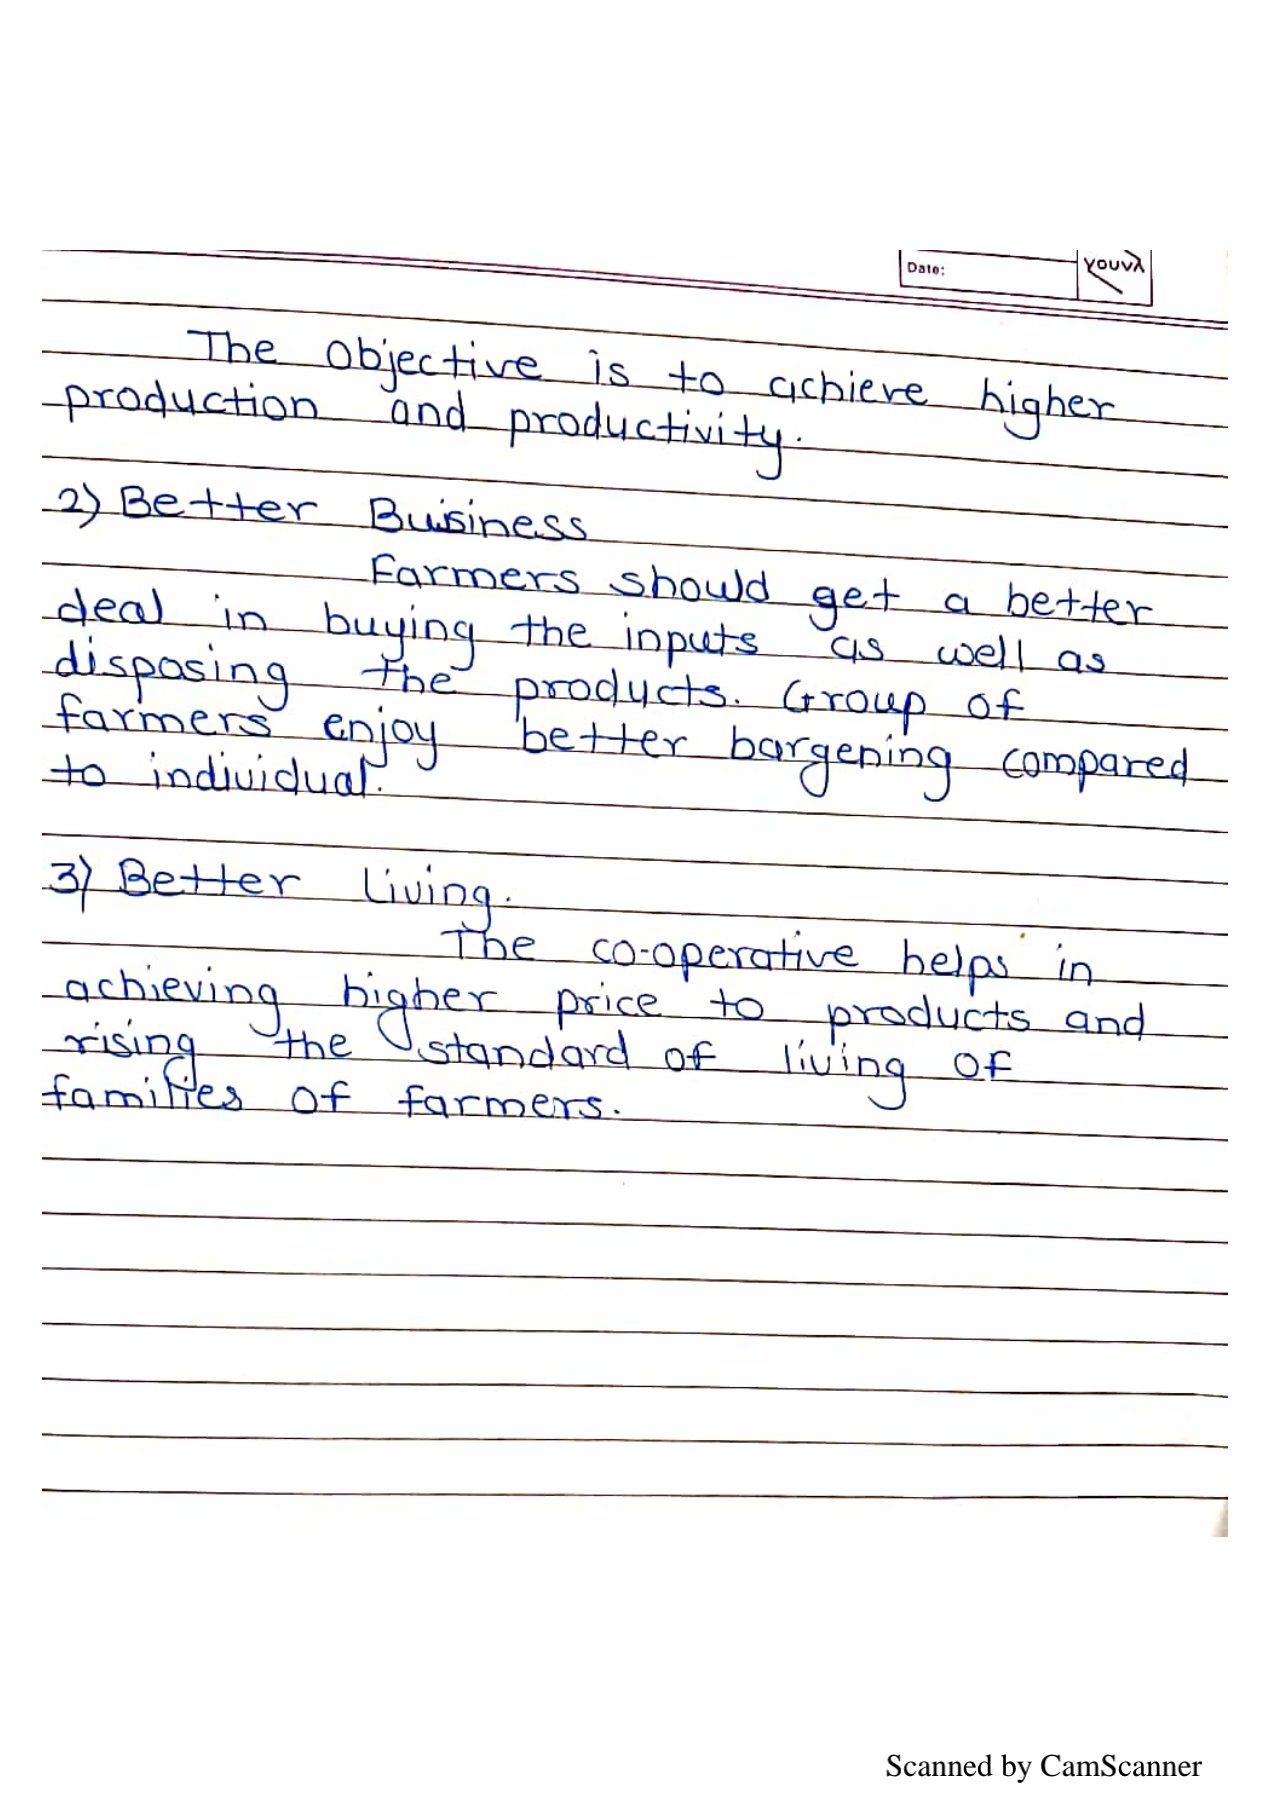 Date:
YOUVA
The objective is to achieve higher
production and productivity.
2) Better Buisiness
Farmers should get a better
deal in buying the inputs as well as
disposing the products. Group of
farmers enjoy better bargening compared
to individual.
3) Better Living.
The co-operative helps in
achieving higher price to products and
rising the standard of living of
families of farmers.
Scanned by CamScanner